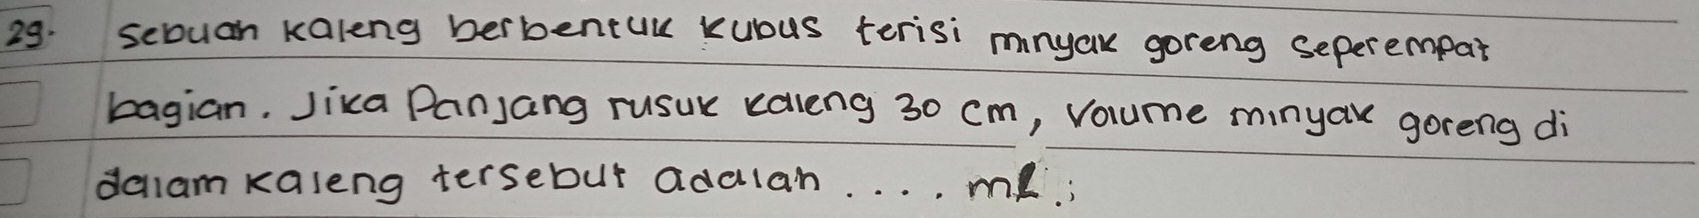 29. Sebuah kaleng berbentuk kubus terisi minyak goreng seperempat
bagian. Jika Panjang rusuk kaleng 30 cm, Volume minyak goreng di
dalam kaleng tersebut adalah .... ml.